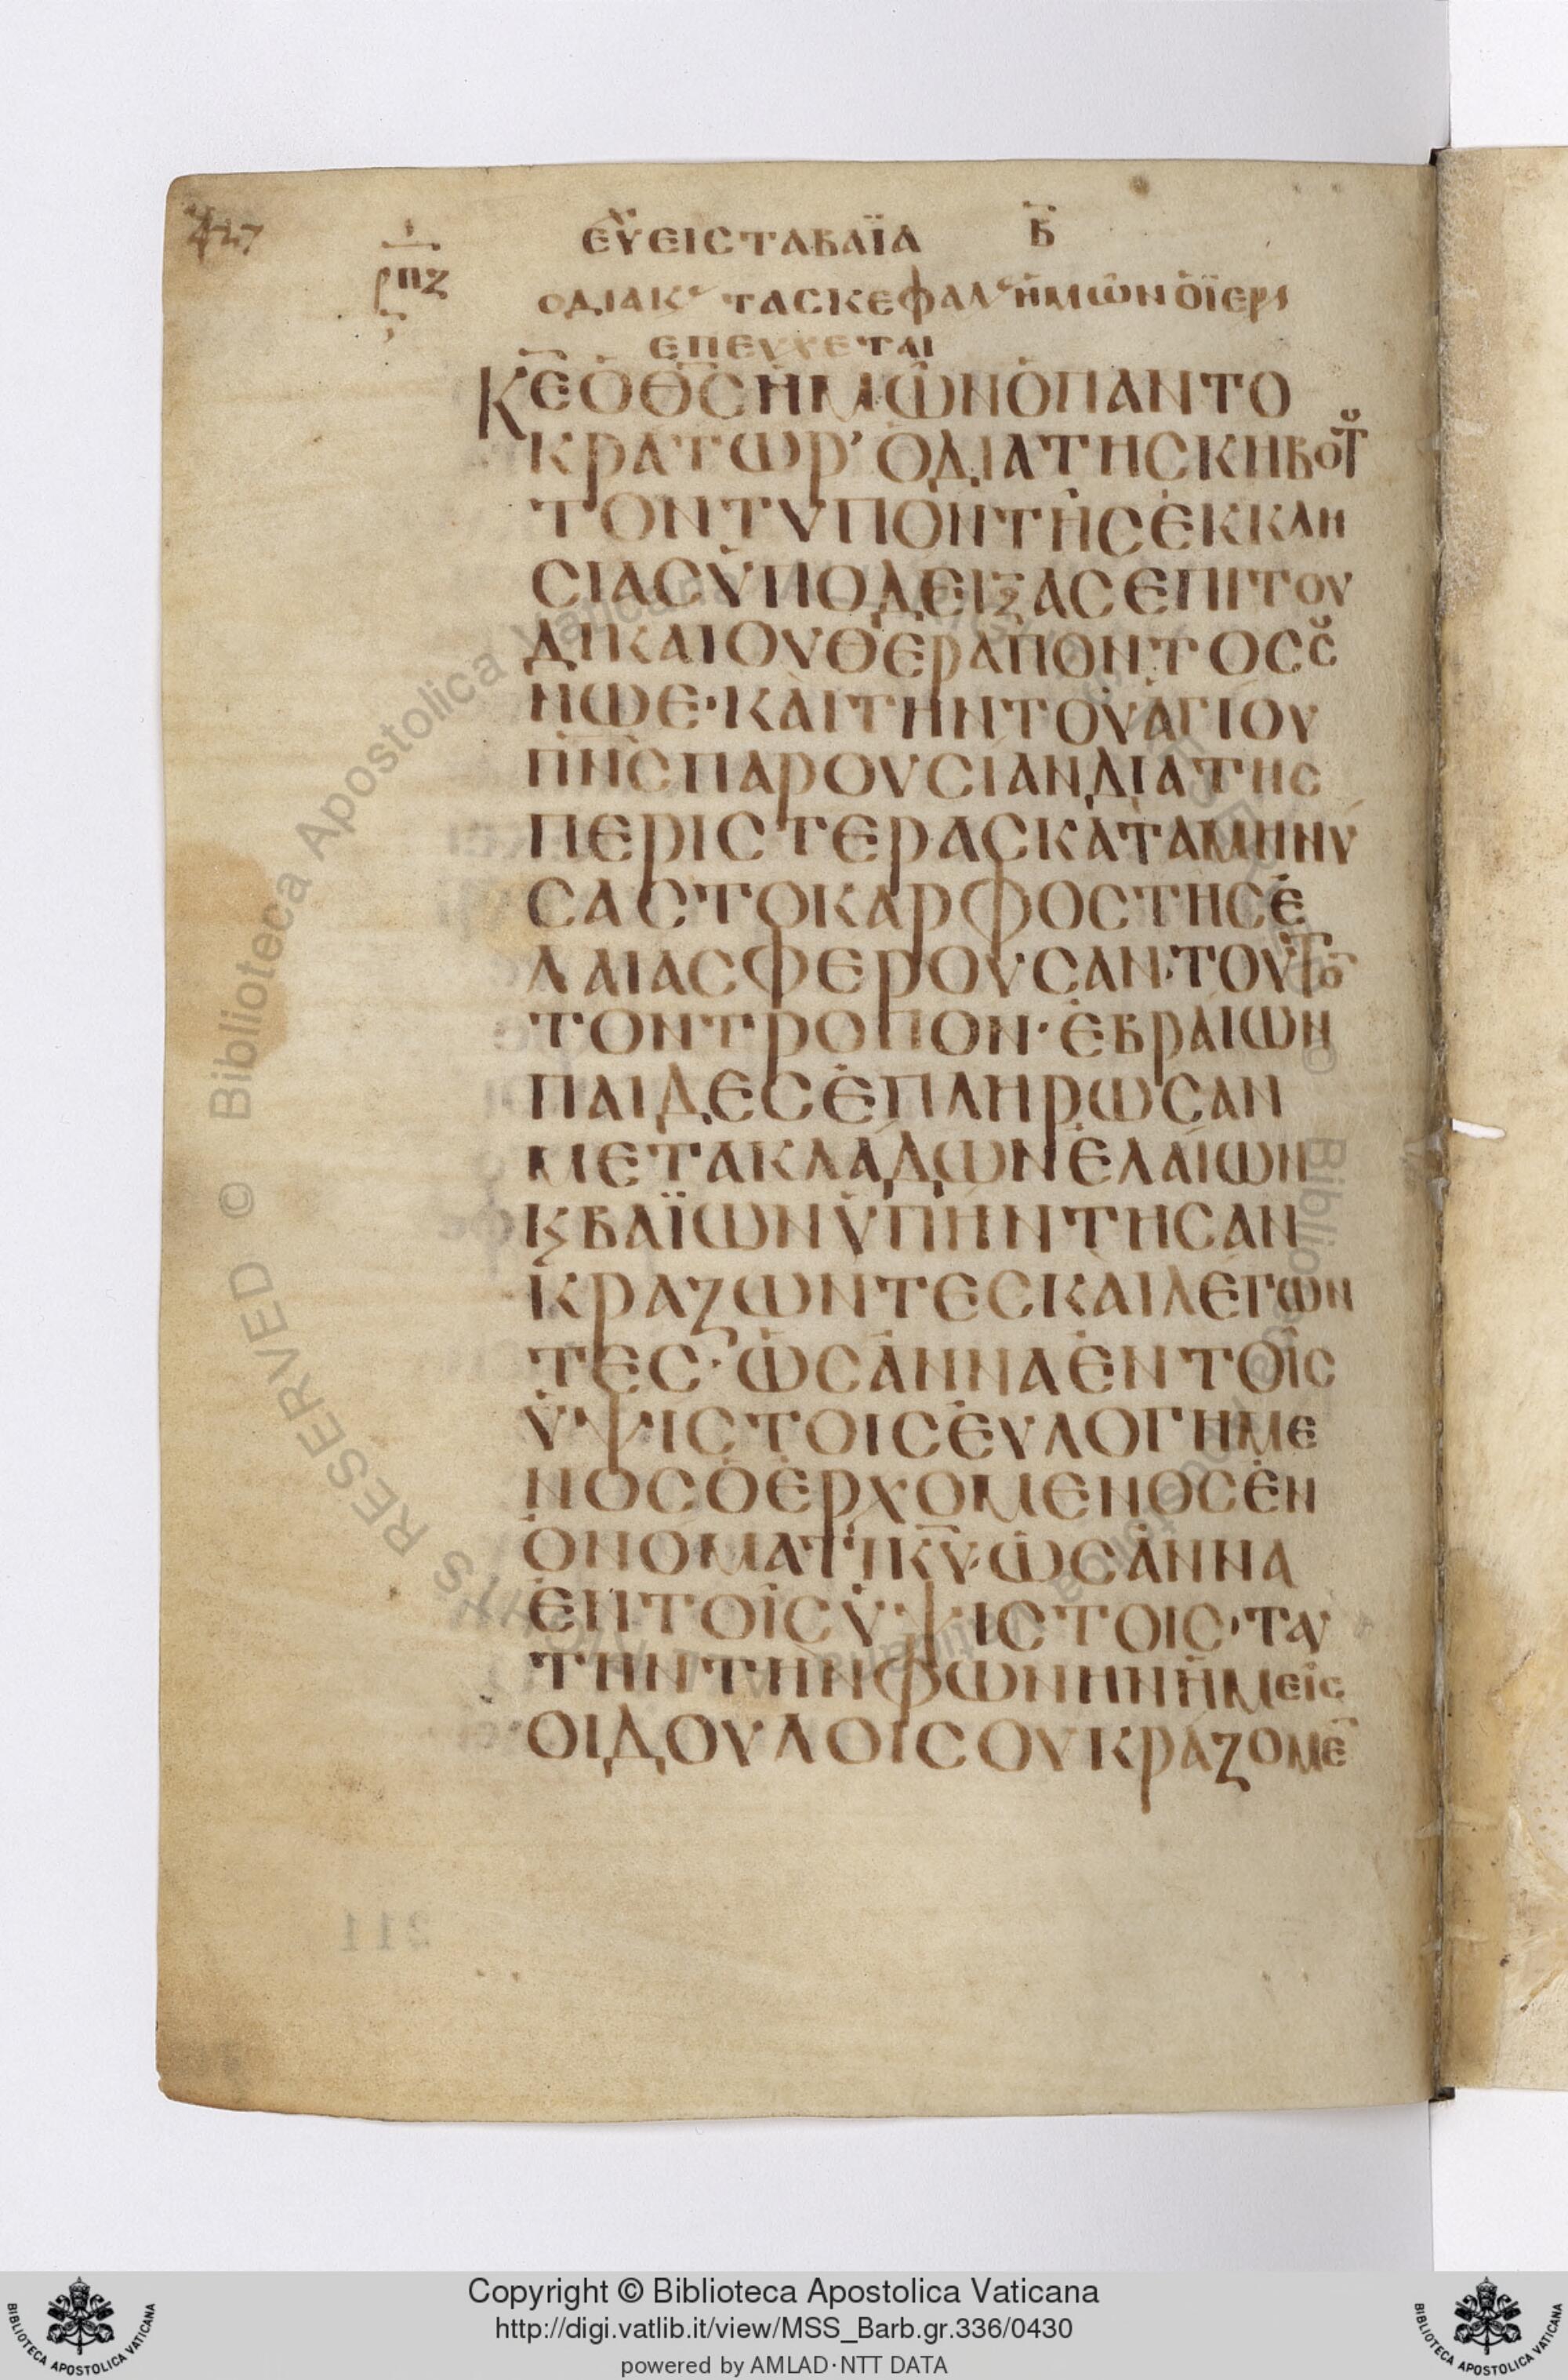 427
ρπζ
ΕΥ̅ ΕΙΣ ΤΑ ΒΑΪΑ Β̅
Ο ΔΙΑΚϚ ΤΑΣ ΚΕΦΑΛϚ ἩΜΩ͂Ν Ὁ ΪΕΡϚ
ΕΠΕΥΧΕΤΑΙ
Κ̅Ε̅ Ὁ Θ̅Σ̅ ἩΜΩ͂Ν Ὁ ΠΑΝΤΟ
ΚΡΑΤΩΡ’ Ὁ ΔΙΑ ΤΗΣ ΚΗΒΟΤȢ
ΤΟΝ ΤΥΠΟΝ ΤΗ͂Σ ἘΚΚΛΗ
ΣΙΑΣ ὙΠΟΔΕΙΞΑΣ ΕΠΙ ΤΟΥ
ΔΙΚΑΙΟΥ ΘΕΡΑΠΟΝΤΟΣ ΣȢ
ΝΩΕ· ΚΑῚ ΤῊΝ ΤΟΥ͂ ἉΓΙΟΥ
Π̅Ν̅Σ̅ ΠΑΡΟΥΣΙΑΝ ΔΙΑ ΤΗΣ
ΠΕΡΙΣΤΕΡΑΣ ΚΑΤΑΜΗΝΥ
ΣΑΣ ΤΟ ΚΑΡΦΟΣ ΤΗΣ Ἐ
ΛΑΙΑΣ ΦΕΡΟΥΣΑΝ· ΤΟΥΤΟ̅
ΤΟΝ ΤΡΟΠΟΝ· ἙΒΡΑΙΩΝ
ΠΑΙΔΕΣ ἘΠΛΗΡΩΣΑΝ
ΜΕΤΑ ΚΛΑΔΩΝ ἘΛΑΙΩΝ
Ϗ ΒΑΪΩΝ ὙΠΗΝΤΗΣΑΝ
ΚΡΑΖΩΝΤΕΣ ΚΑῚ ΛΕΓΩΝ
ΤΕΣ· ὩΣΑΝΝΑ ἘΝ ΤΟΙ͂Σ
ὙΨΙΣΤΟΙΣ ἘΥΛΟΓΗΜΕ
ΝΟΣ Ὁ ἘΡΧΟΜΕΝΟΣ ἘΝ
ΟΝΟΜΑΤΙ Κ̅Υ̅· ὩΣΑΝΝΑ
ἘΝ ΤΟΙ͂Σ ὙΨΙΣΤΟΙΣ· ΤΑΥ
ΤΗΝ ΤῊΝ ΦΩΝΗΝ ἩΜΕΙ͂Σ
ΟΙ ΔΟΥΛΟΙ ΣΟΥ ΚΡΆΖΟΜΕ̅
211
Copyright © Biblioteca Apostolica Vaticana
http://digi.vatlib.it/view/MSS_Barb.gr.336/0430
powered by AMLAD·NTT DATA
BIBLIOTECA APOSTOLICA VATICANA
BIBLIOTECA APOSTOLICA VATICANA